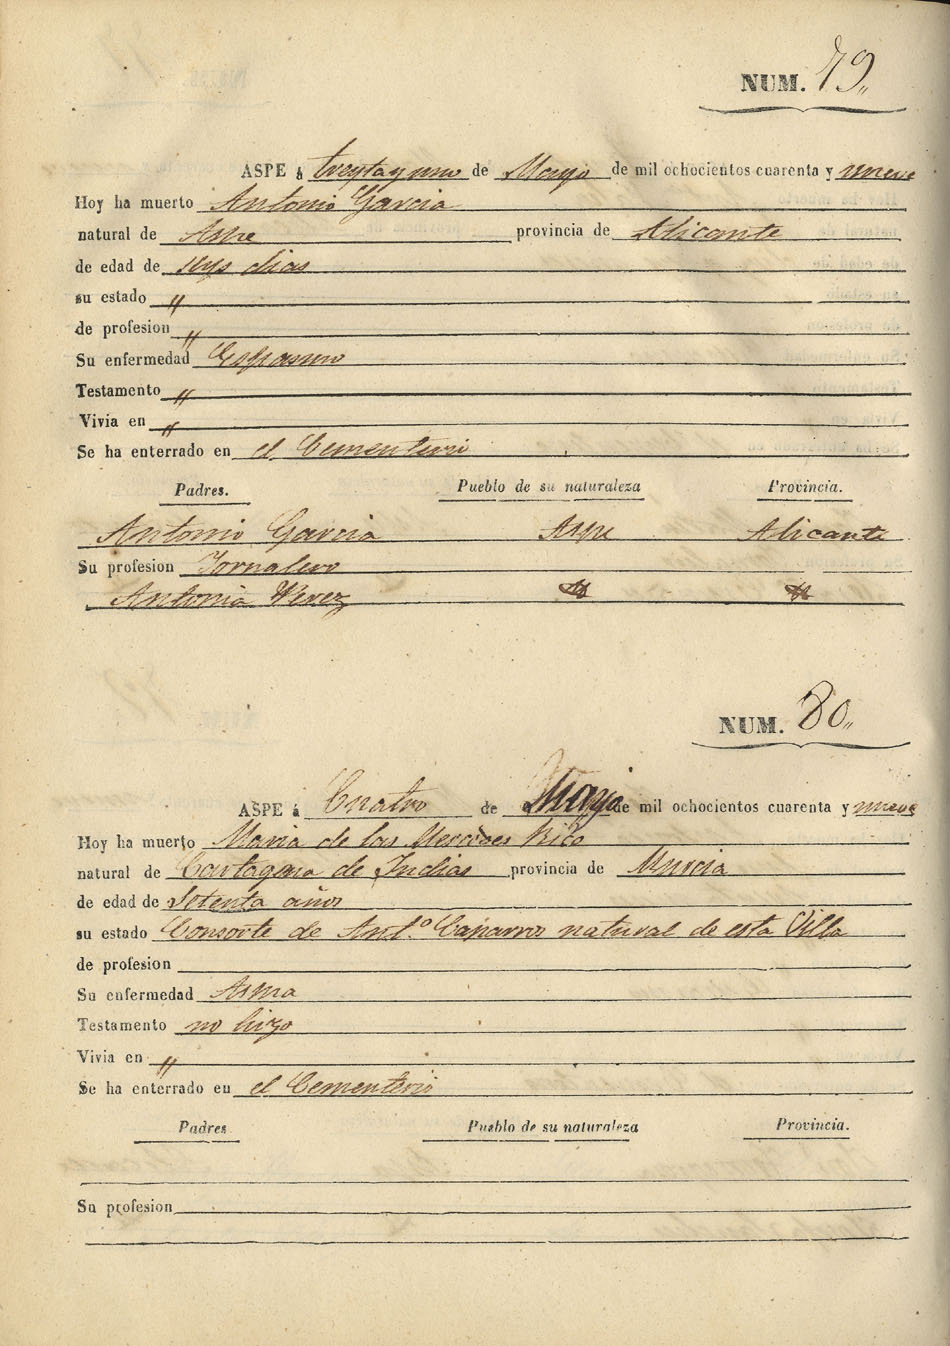 NUM. 79„
ASPE á treytayuno de Mayo de mil ochocientos cuarenta y nueve
Hoy ha muerto Antonio Garcia
natural de Aspe provincia de Alicante
de edad de seys dias
su estado „
de profesion „
Su enfermedad Espasmo
Testamento „
Vivia en „
Se ha enterrado en el Cementerio
Padres. Pueblo de su naturaleza Provincia.
Antonio Garcia Aspe Alicante
Su profesion Jornalero
Antonia Perez
NUM. 80„
ASPE á Cuatro de Mayo de mil ochocientos cuarenta y nueve
Hoy ha muerto Maria de las Mercedes Rico
natural de Cartagena de Indias provincia de Murcia
de edad de Setenta años
su estado Consorte de Ant.º Cañarros natural de esta Villa
de profesion
Su enfermedad Asma
Testamento no hizo
Vivia en „
Se ha enterrado en el Cementerio
Padres Pueblo de su naturaleza Provincia.
Su profesion